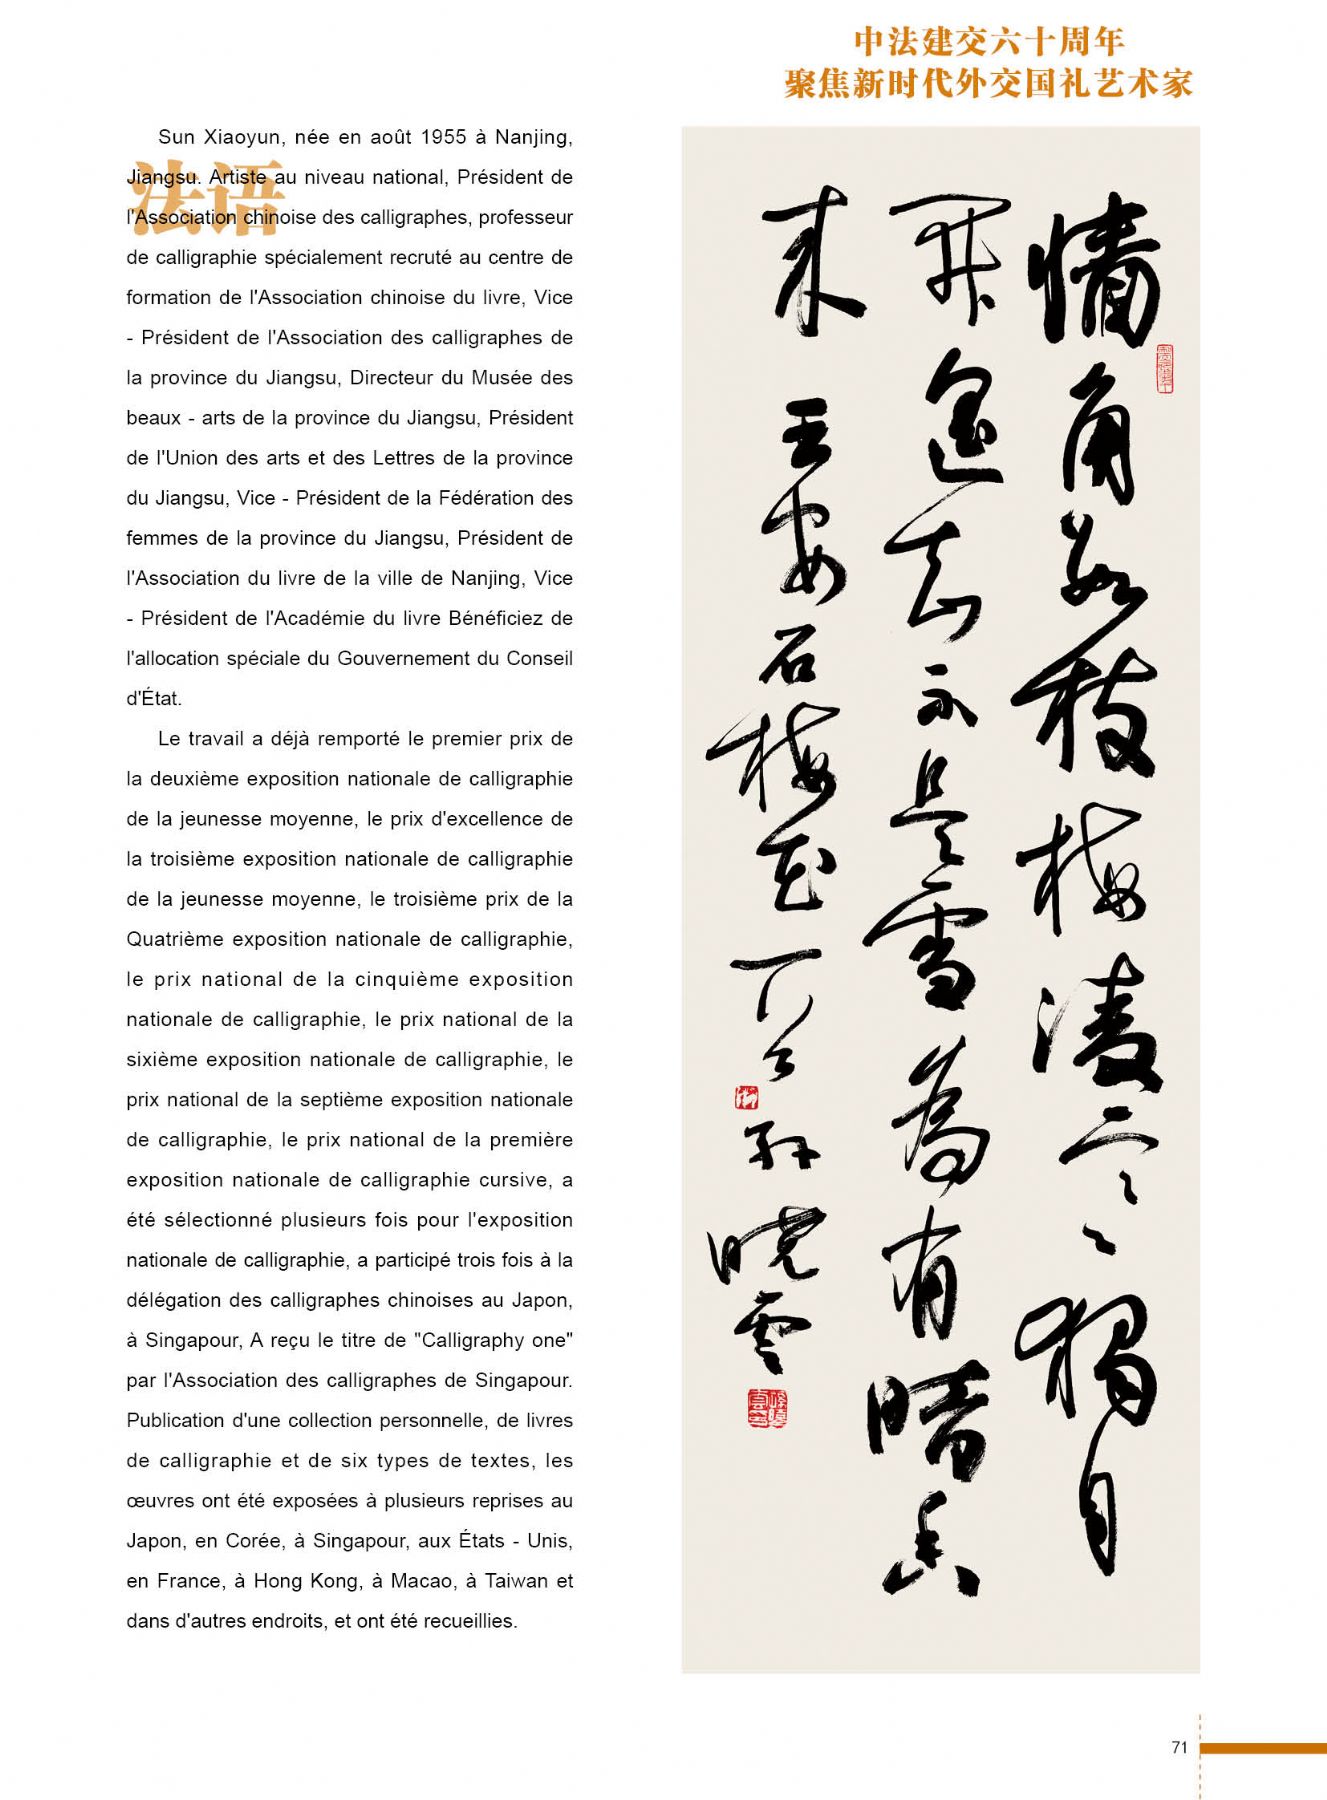 中法建交六十周年
聚焦新时代外交国礼艺术家
法语
Sun Xiaoyun, née en août 1955 à Nanjing,
Jiangsu. Artiste au niveau national, Président de
l'Association chinoise des calligraphes, professeur
de calligraphie spécialement recruté au centre de
formation de l'Association chinoise du livre, Vice
- Président de l'Association des calligraphes de
la province du Jiangsu, Directeur du Musée des
beaux - arts de la province du Jiangsu, Président
de l'Union des arts et des Lettres de la province
du Jiangsu, Vice - Président de la Fédération des
femmes de la province du Jiangsu, Président de
l'Association du livre de la ville de Nanjing, Vice
- Président de l'Académie du livre Bénéficiez de
l'allocation spéciale du Gouvernement du Conseil
d'État.
Le travail a déjà remporté le premier prix de
la deuxième exposition nationale de calligraphie
de la jeunesse moyenne, le prix d'excellence de
la troisième exposition nationale de calligraphie
de la jeunesse moyenne, le troisième prix de la
Quatrième exposition nationale de calligraphie,
le prix national de la cinquième exposition
nationale de calligraphie, le prix national de la
sixième exposition nationale de calligraphie, le
prix national de la septième exposition nationale
de calligraphie, le prix national de la première
exposition nationale de calligraphie cursive, a
été sélectionné plusieurs fois pour l'exposition
nationale de calligraphie, a participé trois fois à la
délégation des calligraphes chinoises au Japon,
à Singapour, A reçu le titre de "Calligraphy one"
par l'Association des calligraphes de Singapour.
Publication d'une collection personnelle, de livres
de calligraphie et de six types de textes, les
œuvres ont été exposées à plusieurs reprises au
Japon, en Corée, à Singapour, aux États - Unis,
en France, à Hong Kong, à Macao, à Taiwan et
dans d'autres endroits, et ont été recueillies.
墙角数枝梅凌寒独自
開遥知不是雪為有暗香
来 王安石梅花一首 孙晓雲
71